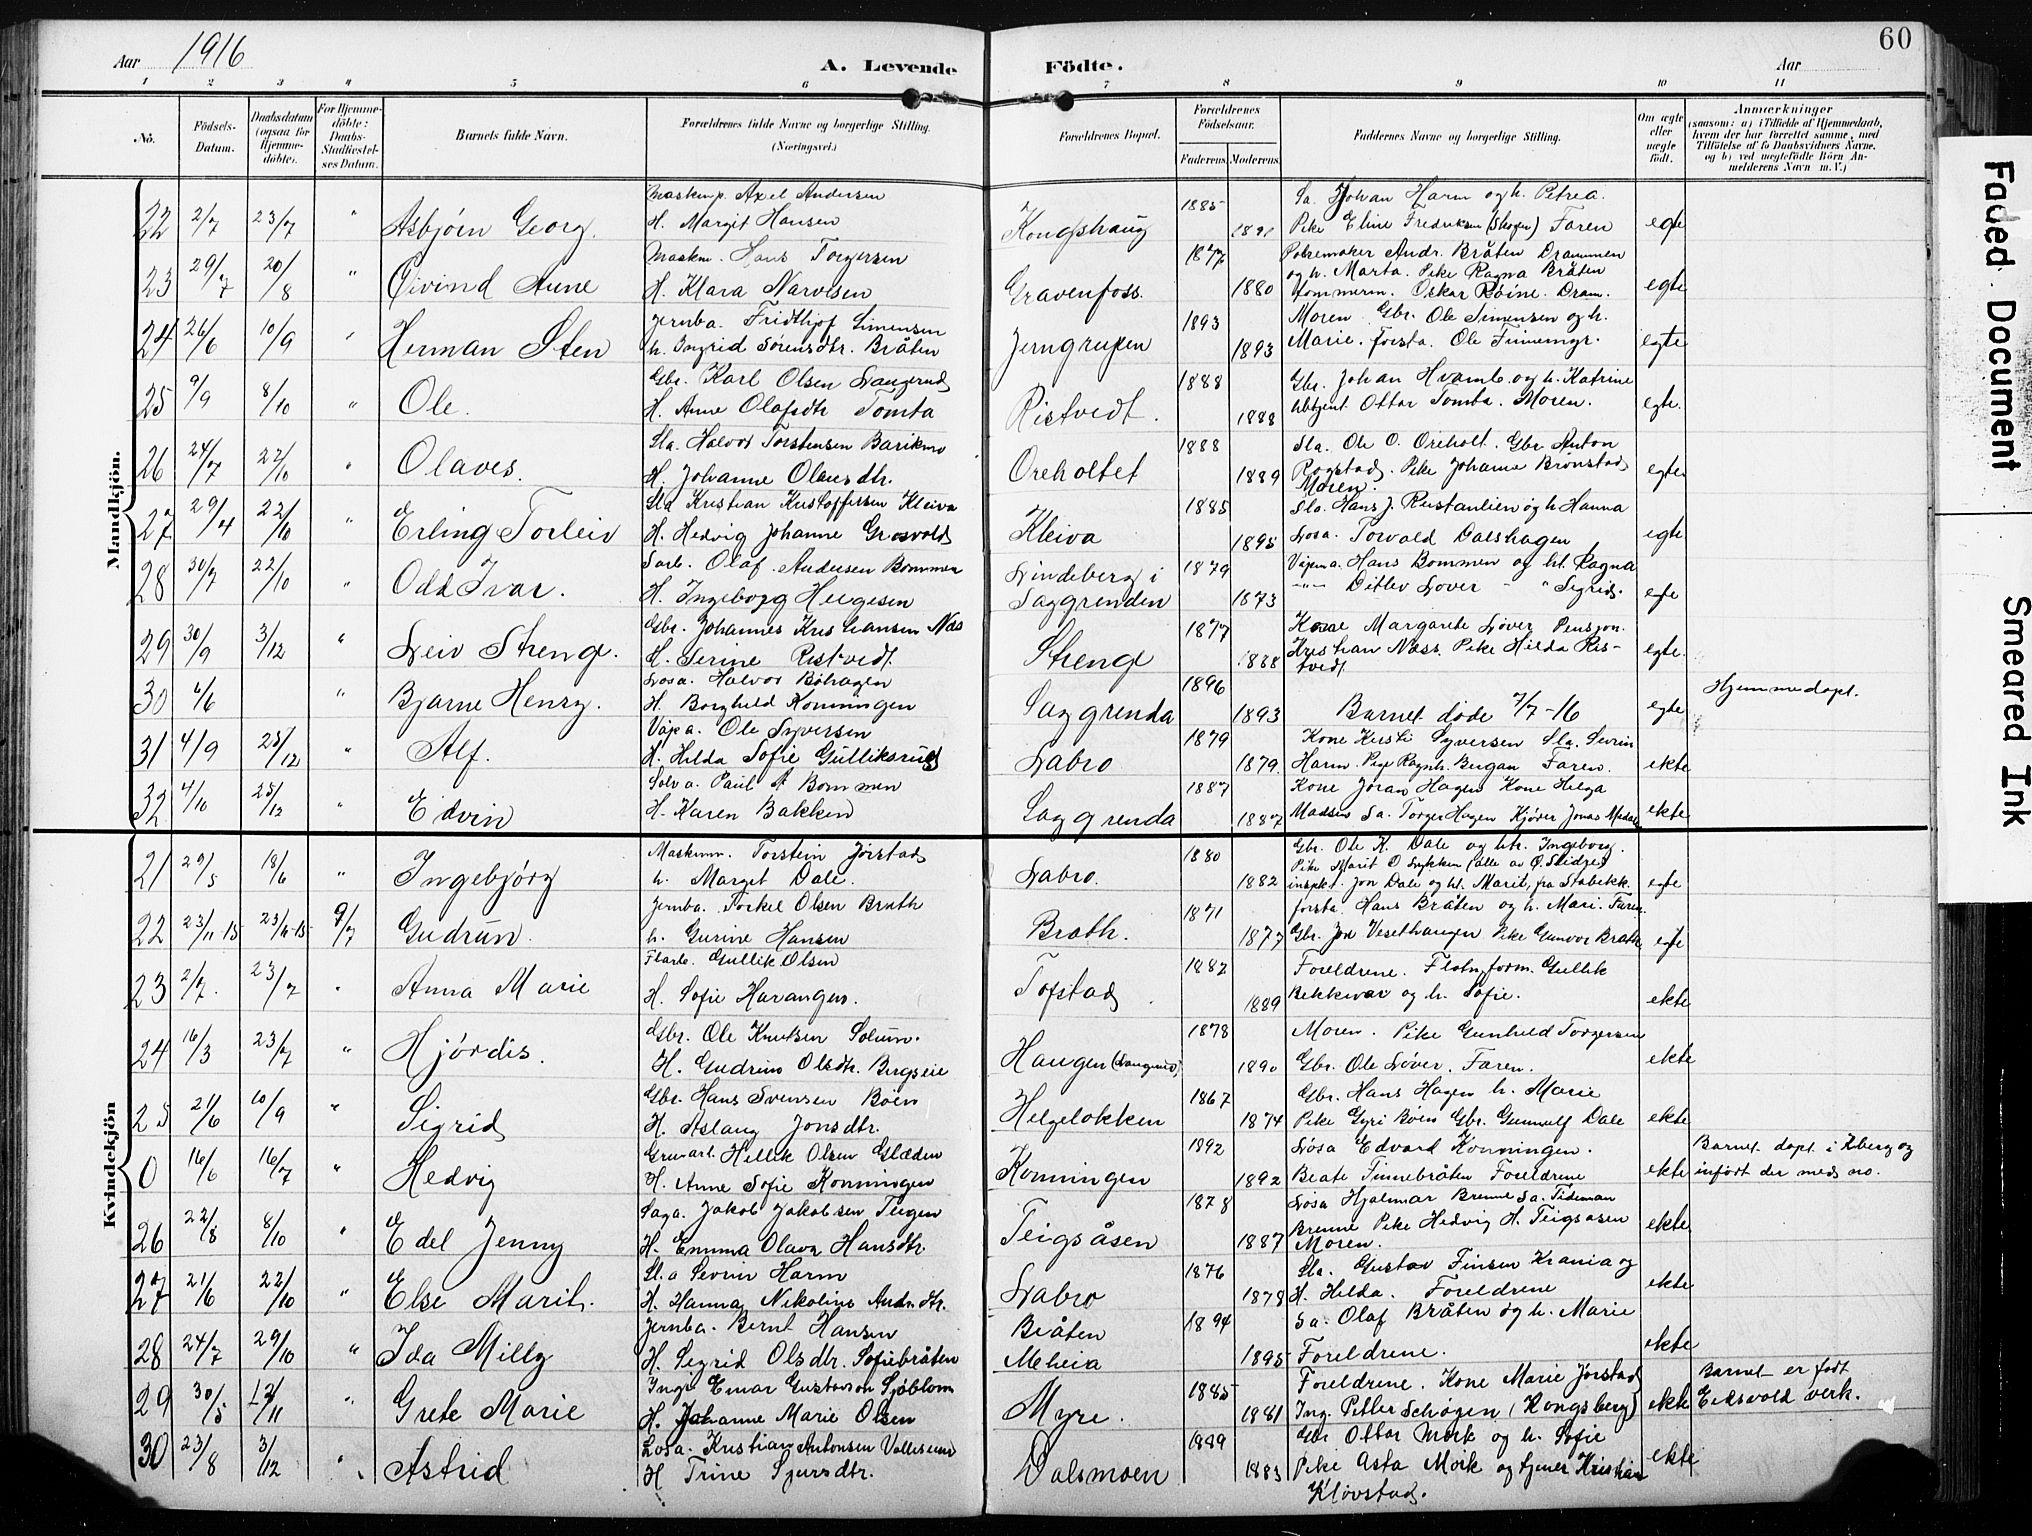 60
Aar 1916
A. Levende
Födte.
Aar
1 2 3 4 5 6 7 8 9 10 11
No.
Födsels-Datum.
Daabsdatum (ogsaa for Hjemme-döbte).
For Hjemme-döbte: Daabs-Stadfæstel-ses Datum.
Barnets fulde Navn.
Forældrenes fulde Navne og borgerlige Stilling. (Næringsvei.)
Forældrenes Bopæl.
Forældrenes Födselsaar.
Faderens Moderens
Faddernes Navne og borgerlige Stilling.
Om ægte eller uægte födt.
Anmærkninger
(saasom: a) i Tilfælde af Hjemmedaab, hvem der har forrettet samme, med Tilföielse af to Daabsvidners Navne, og b) ved uegtefödte Börn An-melderens Navn m. V.)
Mandkjön.
22 2/7 23/7 " Asbjörn Georg. Maskinp. Axel Andersen
H. Margit Hansen Kongshaug 1885 1891 Sa. Johan Harm og h. Petrea.
Pike Eline Fredriksen (Skogen) Faren egte
23 29/7 20/8 " Öivind Aune Maskm. Hans Torgersen
H. Klara Narvesen Gravenfoss. 1877 1880 Andr. Bråten Drammen
og h. Marta. Pike Ragna Bråten
Oskar Röine. Dram. egte
24 26/6 10/9 " Herman Sten Jernba. Fridthjof Simensen
h. Ingrid Sörensdtr. Bråten Jerngruben 1893 1893 Moren Gbr. Ole Simensen og h.
Marie. forsta. Ole egte
25 9/9 8/10 " Ole. Gbr. Karl Olsen Langerud
H. Anne Olafsdtr Tomta Ristvedt. 1888 1888 Gbr. Johan Hvamb. og h. Katrine
Ottar Tomta. Moren. egte.
26 24/7 22/10 " Olaves. Sla. Halvor Torstensen
H. Johanne Olausdtr. Oreholtet 1888 1889 Sla. Ole O. Oreholt. Gbr Anton
Rogstad. Pike Johanne Brönstad
Moren. egte
27 29/4 22/10 " Erling Torleiv Sla Kristian Kristoffersen Kleiva
H. Hedvig Johanne Grosvold Kleiva 1885 1895 Sla. Hans J. Rustanlien og h Hanna
Lösa. Torvald Dalshagen egte
28 30/7 22/10 " Odd Ivar. Sarb. Olaf. Andersen Bommen
H. Ingeborg Helgesen Lindeberg i
Saggrenden 1879 1873 Hans Bommen og h. Ragna
-"- Ditlev Löver - " Sigrid. egte
29 30/9 3/12 " Leiv Strenge. Gbr. Johannes Kristiansen Næs
H. Serine Ristvedt. Strenge 1877 1888 Kone Margarete Löver Pensjon.
Kristian Næss. Pike Hilda Ris-
tvedt egte.
30 6/6 " Bjarne Henry. Lösa. Halvor Böhagen
H. Borghild Konningen Saggrenda 1896 1893 Barnet döde 7/7-16 egte Hjemmedöpt.
31 4/9 25/12 " Alf. Ole Syversen
H. Hilda Sofie Gulliksrud Labro 1879 1879. Kone Kirsti Syversen Sla. Sevrin
Harm. Pige Ragnh. Bergan Faren. ekte
32 4/10 25/12 " Edvin Solva. Paul A Bommen
H. Karen Bakken Saggrenda 1887 1887 Kone Jöran Hagen Kone Helga
Madsen Sa. Torger Hagen Kjörer Jonas ekte
Kvindekjön
21 29/5 18/6 " Ingebjörg Maskinm. Torstein Jörstad
h. Marget Dale. Labro. 1880 1882 Gbr. Ole K. Dale og h. Ingeborg.
Pike Marit O Lykken (alle av
inspkt. Jon Dale og h. Marit, fra Stabekk. egte
22 23/11-15 23/11-15 9/7 Gudrun. Jernba. Torkel Olsen Bråth
h. Gurine Hansen Bråth. 1871 1877 forsta. Hans Bråten og h. Mari. Faren.
Gbr. Jon Pike Gunvor Bråth egte
23 2/7. 23/7 " Anna Marie Flarb. Gullik Olsen
H. Sofie Harangen. Tofstad. 1887 1889 Foreldrene. Flotn.form. Gullik
Bekkevar og h. Sofie. ekte
24 16/3 23/7 " Hjördis. Gbr. Ole Knutsen Solum.
H. Gudrun Olsdtr. Bergseie Haugen (Langerud) 1878 1890 Moren. Pike Gunhild Torgersen
Gbr. Ole Löver. Faren. ekte
25 21/6 10/9 " Sigrid Gbr. Hans Svensen Böen
H. Aslaug Jonsdtr. Helgelökken 1867 1874 Gbr. Hans Hagen h. Marie
Pike Gyri Böen Gbr. Gunnulf Dale ekte
0 16/6 16/7 " Hedvig Gruvarb. Hellik Olsen Glæden
H. Anne Sofie Konningen Konningen 1892 1892 Lösa Edvard Konningen.
Beate Tinnebråten Foreldrene ekte Barnet döpt i Kberg og
infört der med no.
26 22/8 8/10 " Edel Jenny Saga. Jakob Jakobsen Teigen
H. Emma Olava Hansdtr. Teigsåsen 1878 1887 Lösa Hjalmar Brenne Sa. Tideman
Brenne Pike Hedvig H. Teigsåsen
Moren. ekte
27 21/6 22/10 " Else Marit. Sl.a Sevrin Harm
H. Hanna Nikoline Andr.dtr. Labro 1876 1878 Sla. Gustav Finsen Krania og
H. Hilda. Foreldrene ekte
28 24/7 29/10 " Ida Milly Jernba. Bernt Hansen
H. Sigrid Olsdtr. Sofiebråten Bråten
Meheia 1894 1895 Sa. Olaf Bråten og h. Marie
Foreldrene. ekte
29 30/5 12/11 " Grete Marie Ing. Einar Gustavson Sjöblom
H. Johanne Marie Olsen Myre. 1885 1881 Foreldrene. Kone Marie Jörstad
Ing. Petter Schögen (Kongsberg) ekte Barnet er född
Eidsvold verk.
30 23/8 3/12 " Astrid Lösa. Kristian Antonsen
H Trine Sjursdtr. Dalsmoen 1889 1883 Gbr Ottar Mörk og h. Sofie
Pike Asta Mörk og tjener Kristian
Klövstad. ekte
Faded Document
Smeared Ink